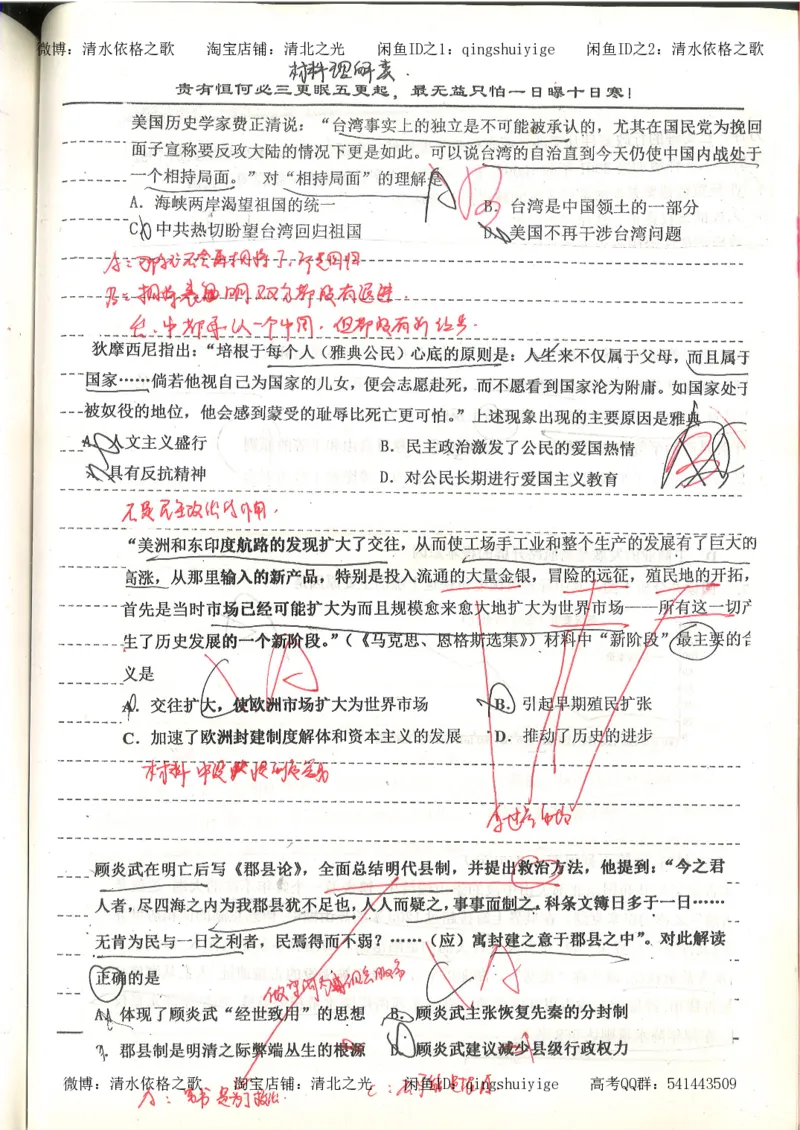 微博：清水依格之歌 淘宝店铺：清北之光 闲鱼ID之1：qingshuiyige 闲鱼ID之2：清水依格之歌
材料理解类.
贵有恒何必三更眠五更起，最无益只怕一日曝十日寒！
美国历史学家费正清说：“台湾事实上的独立是不可能被承认的，尤其在国民党为挽回
面子宣称要反攻大陆的情况下更是如此。可以说台湾的自治直到今天仍使中国内战处于
一个相持局面。”对“相持局面”的理解是 A B
A．海峡两岸渴望祖国的统一 B．台湾是中国领土的一部分
C．中共热切盼望台湾回归祖国 D．美国不再干涉台湾问题
B：相持表明双方都没有退进.
台.中都承认一个中国.但都没有新
狄摩西尼指出：“培根于每个人（雅典公民）心底的原则是：人生来不仅属于父母，而且属于
国家……倘若他视自己为国家的儿女，便会志愿赴死，而不愿看到国家沦为附庸。如国家处于
被奴役的地位，他会感到蒙受的耻辱比死亡更可怕。”上述现象出现的主要原因是雅典
A．人文主义盛行 B．民主政治激发了公民的爱国热情
具有反抗精神 D．对公民长期进行爱国主义教育
B
不是民主政治的作用.
“美洲和东印度航路的发现扩大了交往，从而使工场手工业和整个生产的发展有了巨大的
高涨，从那里输入的新产品，特别是投入流通的大量金银，冒险的远征，殖民地的开拓，
首先是当时市场已经可能扩大为而且规模愈来愈大地扩大为世界市场——所有这一切产
生了历史发展的一个新阶段。”（《马克思、恩格斯选集》）材料中“新阶段”最主要的含
义是 C A
A．交往扩大，使欧洲市场扩大为世界市场 B．引起早期殖民扩张
C．加速了欧洲封建制度解体和资本主义的发展 D．推动了历史的进步
材料中没
顾炎武在明亡后写《郡县论》，全面总结明代县制，并提出救治方法，他提到：“今之君
人者，尽四海之内为我郡县犹不足也，人人而疑之，事事面制之，科条文簿日多于一日……
无肯为民与一日之利者，民焉得而不弱？……（应）寓封建之意于郡县之中”。对此解读
正确的是 C A
A．体现了顾炎武“经世致用”的思想 B．顾炎武主张恢复先秦的分封制
．郡县制是明清之际弊端丛生的根源 D．顾炎武建议减少县级行政权力
微博：清水依格之歌 淘宝店铺：清北之光 闲鱼ID：qingshuiyige 高考QQ群：541443509